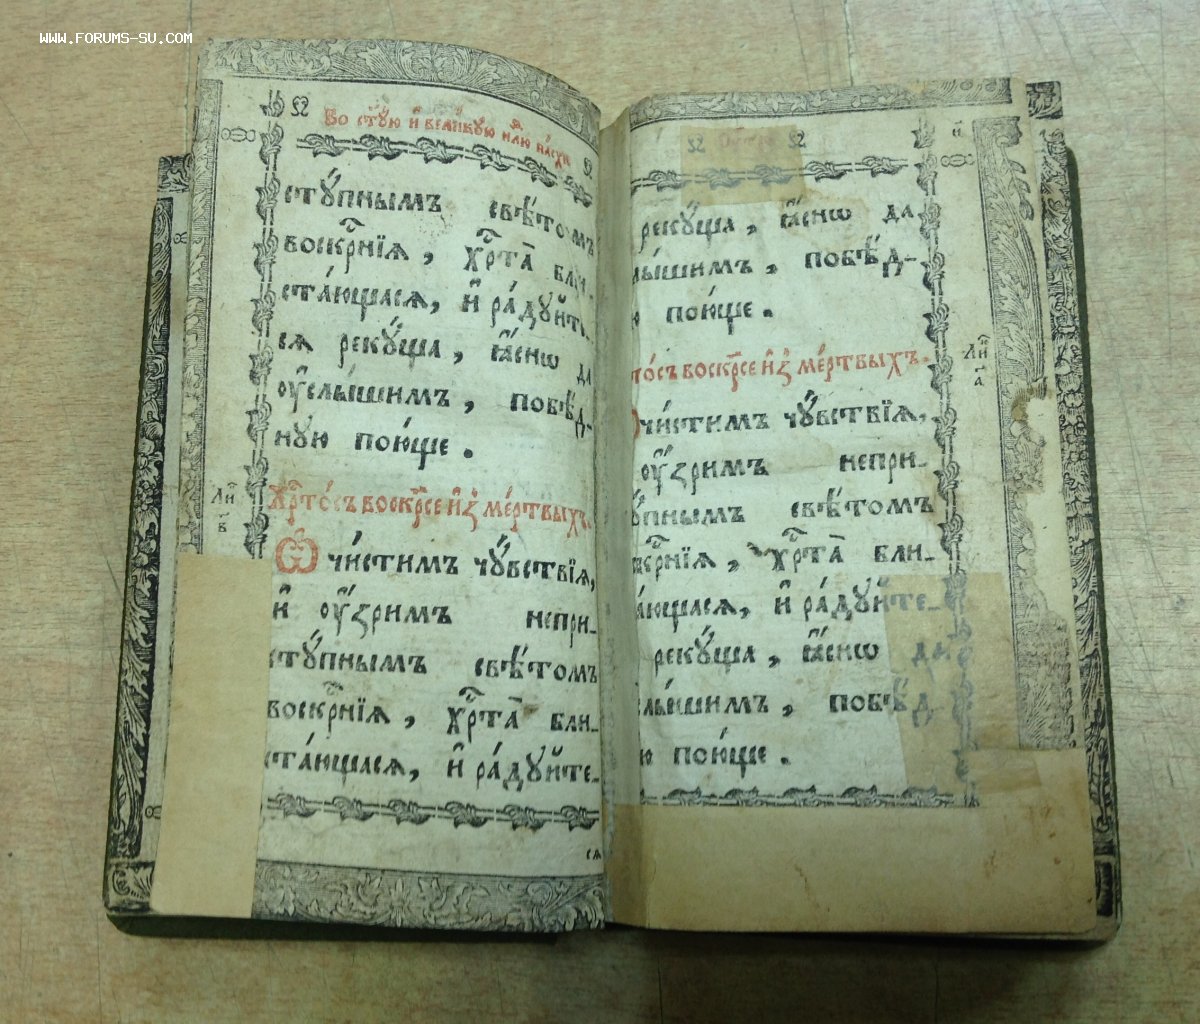 www.forums-su.com
Во ст҃ꙋю и҆ вели́кꙋю нлⷣю па́схи
стꙋ́пнымъ свѣ́томъ
воскрⷭ҇нїѧ, хрⷭ҇та̀ бли-
ста́ющасѧ, и҆ ра́дꙋйте-
сѧ рекꙋ́ща, ꙗ҆́снѡ да
ᲂу҆слы́шимъ, побѣ́д-
нꙋю пою́ще.
Ли́
в҃
Хрⷭ҇то́съ воскр҃се и҆з̾ ме́ртвыхъ.
Ѡ҆чи́стимъ чꙋ́вствїѧ,
и҆ ᲂу҆́зримъ непри-
стꙋ́пнымъ свѣ́томъ
воскрⷭ҇нїѧ, хрⷭ҇та̀ бли-
ста́ющасѧ, и҆ ра́дꙋйте-
сѧ
рекꙋ́ща, ꙗ҆́снѡ да
лы́шимъ, побѣ́д-
ю пою́ще.
Ли́
а҃
то́съ воскр҃се и҆з̾ ме́ртвыхъ.
чи́стимъ чꙋ́вствїѧ,
ᲂу҆́зримъ непри-
ꙋ́пнымъ свѣ́томъ
скрⷭ҇нїѧ, хрⷭ҇та̀ бли-
а́ющасѧ, и҆ ра́дꙋйте-
рекꙋ́ща, ꙗ҆́снѡ да
слы́шимъ, побѣ́д-
ю пою́ще.